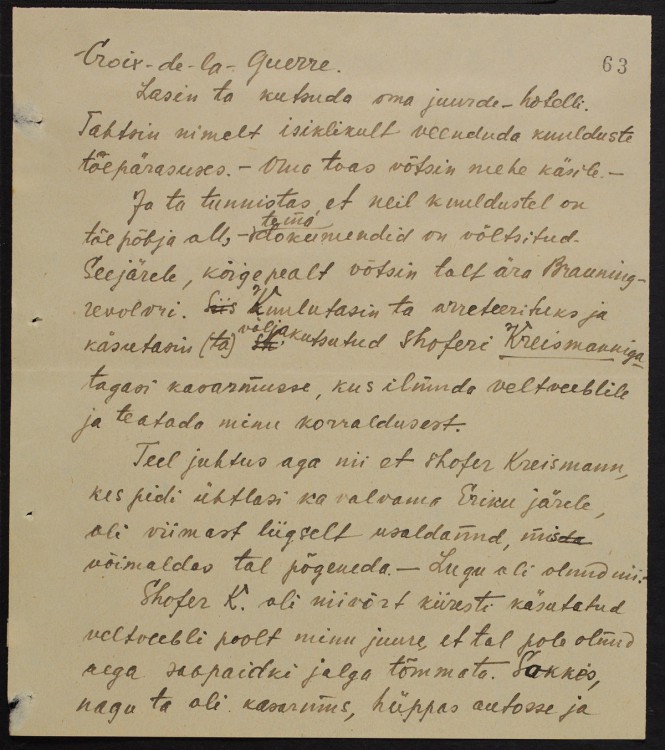 Croix-de-la-Guerre.
63
Lasin ta kutsuda oma juurde-hotelli.
Tahtsin nimelt isiklikult veenduda kuulduste
tõepärasuses. - Oma toas võtsin mehe käsile. -
Ja ta tunnistas, et neil kuuldustel on
tõepõhja all, - tema dokumendid on võltsitud.
Seejärele, kõigepealt võtsin talt ära Brauning-
revolvri. Siis Kuulutasin ta arreteerituks ja
käsutasin (ta) väljakutsutud shoferi Kreismanniga
tagasi kasarmusse, kus ilmuda veltveeblile
ja teatada minu korraldusest.
Teel juhtus aga nii et shofer Kreismann,
kes pidi ühtlasi ka valvama Eriku järele,
oli viimast liigselt usaldanud, mis
võimaldas tal põgeneda. - Lugu oli olnud nii. -
Shofer K. oli niivõrt kiiresti käsutatud
veltveebli poolt minu juure, et tal pole olnud
aega saapaidki jalga tõmmata. Sokkis,
nagu ta oli kasarmus, hüppas autosse ja